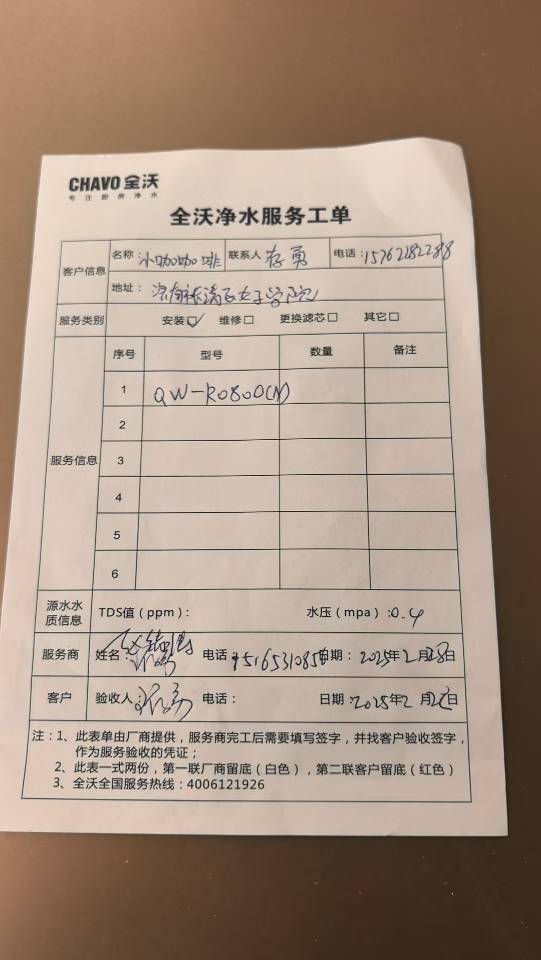 CHAVO 全沃
专注厨房净水
全沃净水服务工单
客户信息 名称：小咖咖啡 联系人 存勇 电话：15762182288
地址：济南 女子学院
服务类别 安装☑ 维修□ 更换滤芯□ 其它□
服务信息 序号 型号 数量 备注
1 QW-RO800(N)
2
3
4
5
6
源水水质信息 TDS值（ppm）： 水压（mpa）：0.4
服务商 姓名： 电话 日期：2025年2月28日
客户 验收人 电话： 日期：2025年2月 日
注：1、此表单由厂商提供，服务商完工后需要填写签字，并找客户验收签字，
作为服务验收的凭证；
2、此表一式两份，第一联厂商留底（白色），第二联客户留底（红色）
3、全沃全国服务热线：4006121926